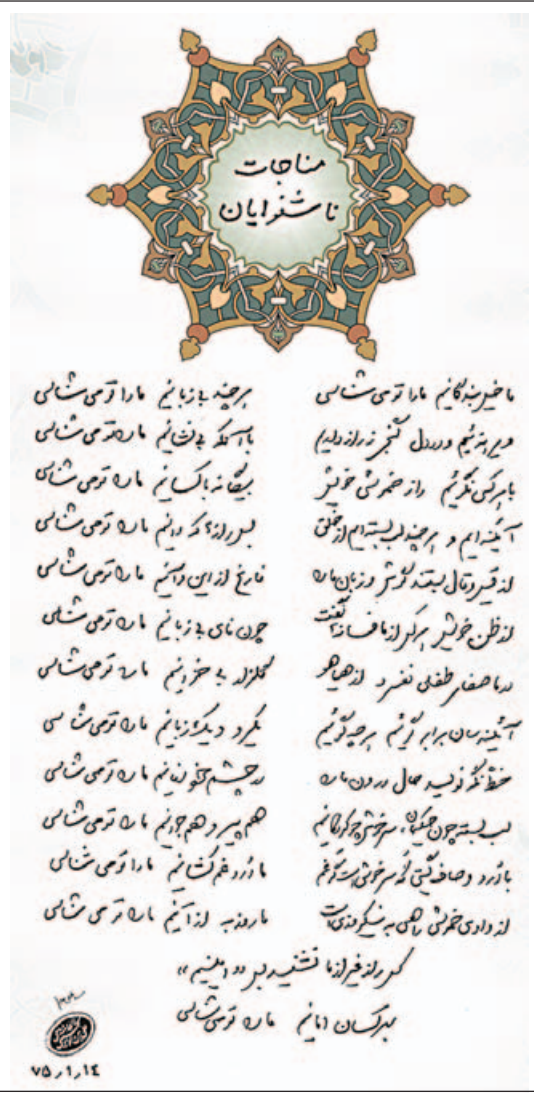 مناجات
ناشنوایان
ما خیل بندگانیم ما را تو می‌شناسی هر چند بی‌زبانیم ما را تو می‌شناسی
ویرانه‌ئیم و در دل گنجی ز راز داریم با آنکه بی‌نشانیم ما را تو می‌شناسی
با هر کسی نگوئیم راز خموشی خویش بیگانه با کسانیم ما را تو می‌شناسی
آئینه‌ایم و هر چند لب بسته‌ایم از خلق بس رازها که دانیم ما را تو می‌شناسی
از قیل و قال بستند گوش و زبان ما را فارغ از این و آنیم ما را تو می‌شناسی
از ظن خویش هر کس از ما فسانه‌ها گفت چون نای بی‌زبانیم ما را تو می‌شناسی
در ما صفای طفلی نفسرد از هیاهو گلزار بی‌خزانیم ما را تو می‌شناسی
آئینه‌سان برابر گوئیم هر چه گوئیم یکرو و یک زبانیم ما را تو می‌شناسی
خط نگه نویسد حال درون ما را در چشم خود نهانیم ما را تو می‌شناسی
لب بسته چون حکیمان، سر خوش چو کودکانیم هم پیر و هم جوانیم ما را تو می‌شناسی
با دُرد و صاف گیتی گه سرخوش است گه غم ما دُرد غم کشانیم ما را تو می‌شناسی
از وادی خموشی راهی به نیکروزی‌ست ما روز به از آنیم ما را تو می‌شناسی
کس راز غیر از ما نشنید بس «امینیم»
بهر کسان امانیم ما را تو می‌شناسی
۷۵٫۱٫۱٤